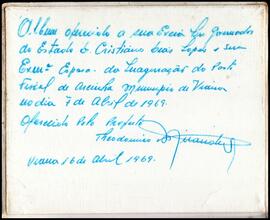 Album oferecido a sua Excia Sr. governador
do Estado Dr. Cristiano Dias Lopes e sua
Exmª Esposa. da Inauguração do Posto
Fiscal de Município de Viana
no dia 7 de Abril de 1969.
Oferecido Pelo Prefeito
Theodomiro
Viana 16 de Abril 1969.